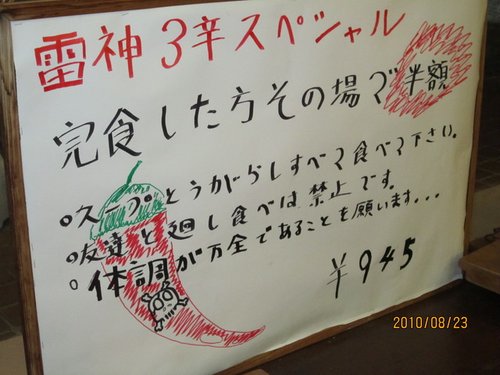 雷神3辛スペシャル
完食した方その場で半額
○スープとうがらしすべて食べて下さい。
○友達と廻し食べは禁止です。
○体調が万全であることを願います...
¥945
2010/08/23